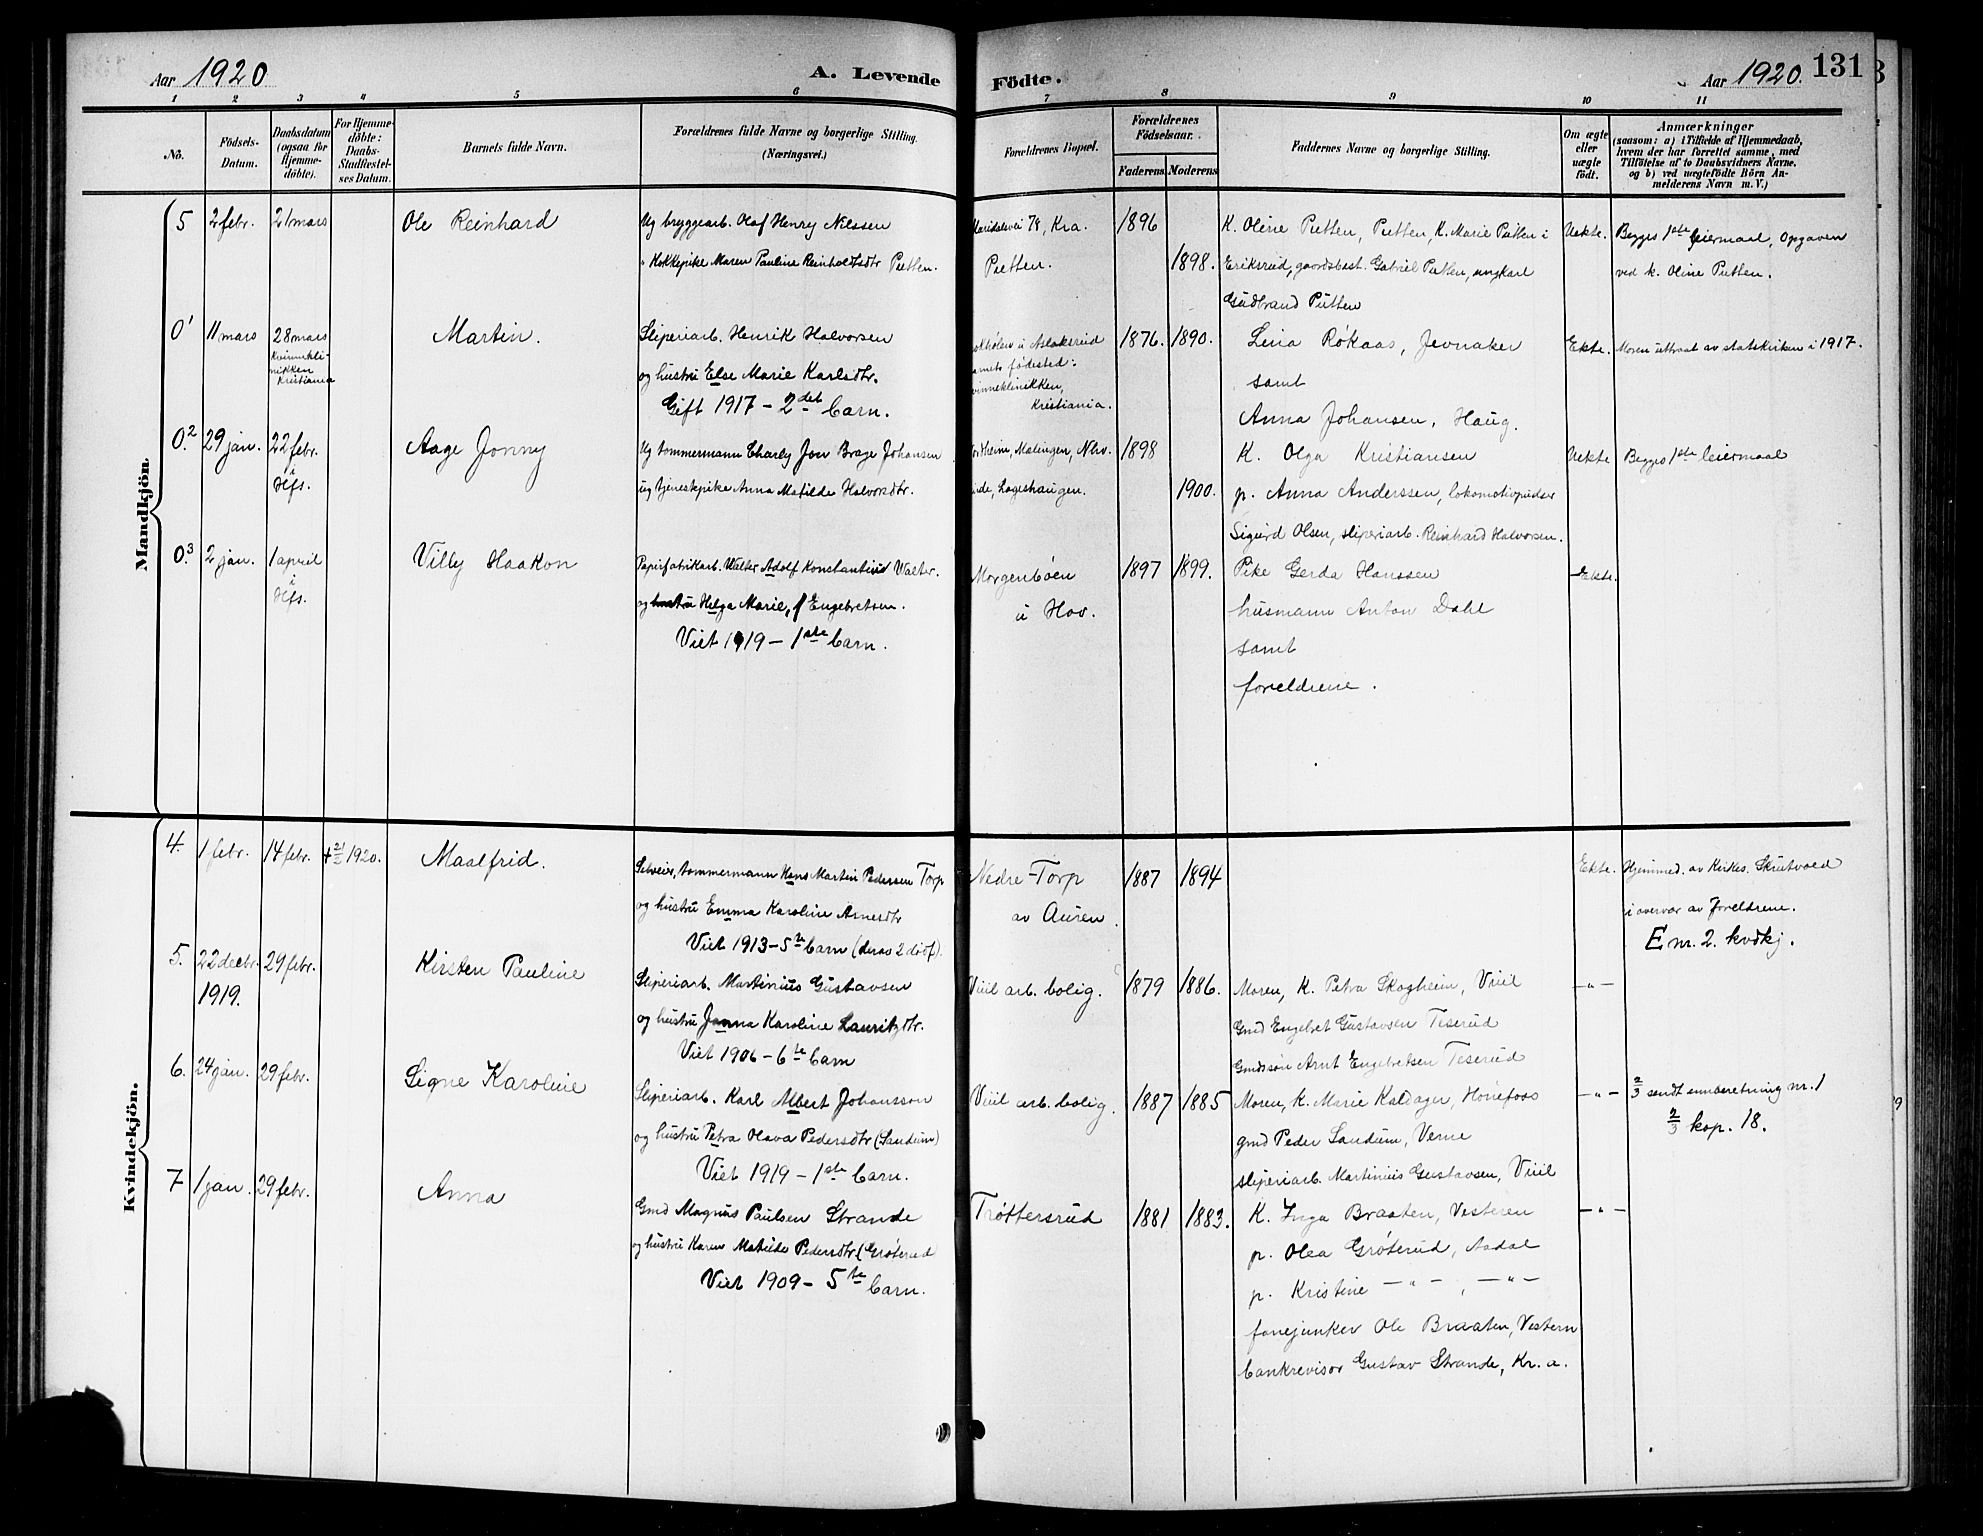 Aar 1920
A. Levende
Födte.
Aar 1920.
131
1 2 3 4 5 6 7 8 9 10 11
No.
Födsels-
Datum.
Daabsdatum
(ogsaa for
Hjemme-
döbte).
For Hjemme-
döbte:
Daabs-
Stadfæstel-
ses Datum.
Barnets fulde Navn.
Forældrenes fulde Navne og borgerlige Stilling.
(Næringsvei.)
Forældrenes Bopæl.
Forældrenes
Födselsaar.
Faderens Moderens
Faddernes Navne og borgerlige Stilling.
Om ægte
eller
uægte
födt.
Anmærkninger
(saasom: a) i Tilfælde af Hjemmedaab,
hvem der har forrettet samme, med
Tilföielse af to Daabsvidners Navne,
og b) ved uægtefödte Börn An-
melderens Navn m. V.)
Mandkjön.
5 2 febr. 21 mars Ole Reinhard
Ug bryggearb. Olaf Henry Nilssen
" Kokkepike Maren Pauline Reinholdtsdtr Putten.
Maridalsvei 78, Kra.
Putten.
1896
1898.
K. Oline Putten, Putten, K. Marie Putten i
Eriksrud, gaardsbest. Gabriel Putten, ungkarl
Gudbrand Putten
Uekte.
Begges 1ste leiermaal, Opgaven
ved k. Oline Putten.
0 1 11 mars 28 mars
Kvinnekli-
nikken
Kristiania
Martin.
Sliperiarb. Henrik Halvorsen
og hustru Else Marie Karlsdtr.
Gift 1917 - 2det barn.
i Aslaksrud
fødested:
vinneklinikken,
Kristiania.
1876. 1890.
Lina Rökaas, Jevnaker
samt
Anna Johansen, Haug.
Ekte.
Moren uttraat av statskirken i 1917.
0.2 29 jan. 22 febr.
i
Hfs.
Aage Jonny
Ug tømmermann Charly Jon Brage Johansen
ug tjenestepike Anna Matilde Halvorsdtr.
Malingen, Nhv.
Lageshaugen.
1898
1900.
K. Olga Kristiansen
p. Anna Anderssen, lokomotivpudser
Sigurd Olsen, sliperiarb. Reinhard Halvorsen.
Uekte
Begges 1ste leiermaal
0.3 2 jan. 1 april
i
Hfs.
Villy Haakon
Papirfabrikarb. Walter Adolf Konstantius Walter.
og hustru Helga Marie, f Engebretsen.
Viet 1919 - 1ste barn.
Morgenbøen
i Hov.
1897 1899.
Pike Gerda Hanssen
husmann Anton Dahl
samt
foreldrene.
Ekte.
Kvindekjön.
4. 1 febr. 14 febr. + 21/2 1920. Maalfrid.
Selveier, tømmermann Hans Martin Pedersen Torp
og hustru Emma Karoline Arnesdtr
Viet 1913 - 5te barn (derav 2 dödf).
Nedre-Torp
av Auren.
1887 1894
Ekte.
Hjemmed. av Kirkes. Skutvold
i overvær av foreldrene.
E nr. 2. kvdkj.
5. 22 decbr. 29 febr.
1919.
Kirsten Pauline
Sliperiarb. Martinius Gustavsen
og hustru Janna Karoline Lauritzdtr.
Viet 1906 - 6te barn
Viul arb. bolig.
1879 1886.
Moren, K. Petra Skogheim, Viul
Gmd Engebret Gustavsen Teserud
Gmdssön Arnt Engebretsen Teserud
- " -
6. 24 jan. 29 febr. Signe Karoline
Sliperiarb. Karl Albert Johansson
og hustru Petra Olava Pedersdtr (Sandum)
Viet 1919 - 1ste barn.
Viul arb. bolig.
1887 1885
Moren, K. Marie Kaldager, Hönefoss
gmd Peder Sandum, Verne
sliperiarb. Martinius Gustavsen, Viul
- " -
2/3 sendt innberetning nr. 1
2/3 kop. 18.
7 1 jan. 29 febr. Anna
Gmd Magnus Paulsen Strande
og hustru Karen Matilde Pedersdtr (Gröterud
Viet 1909 - 5te barn.
Tröttersrud
1881 1883.
K. Inga Braaten, Vesteren
p. Olea Gröterud, Aadal
p. Kristine - " -, - " -
fanejunker Ole Braaten, Vestern
bankrevisor Gustav Strande, Kr.a.
- " -